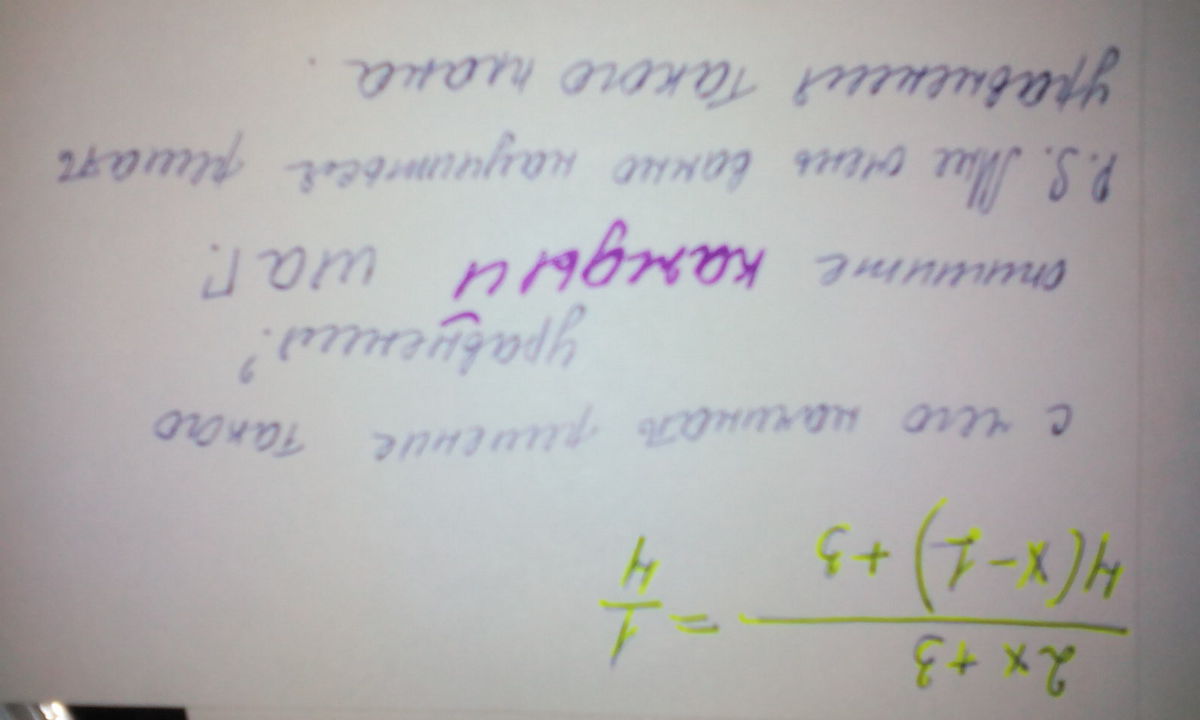 2x+3
4(x-1)+3
= 1
4
с чего начинать решение такого
уравнения?
опишите каждый шаг.
P.S. Мне очень важно научиться решать
уравнения такого плана.